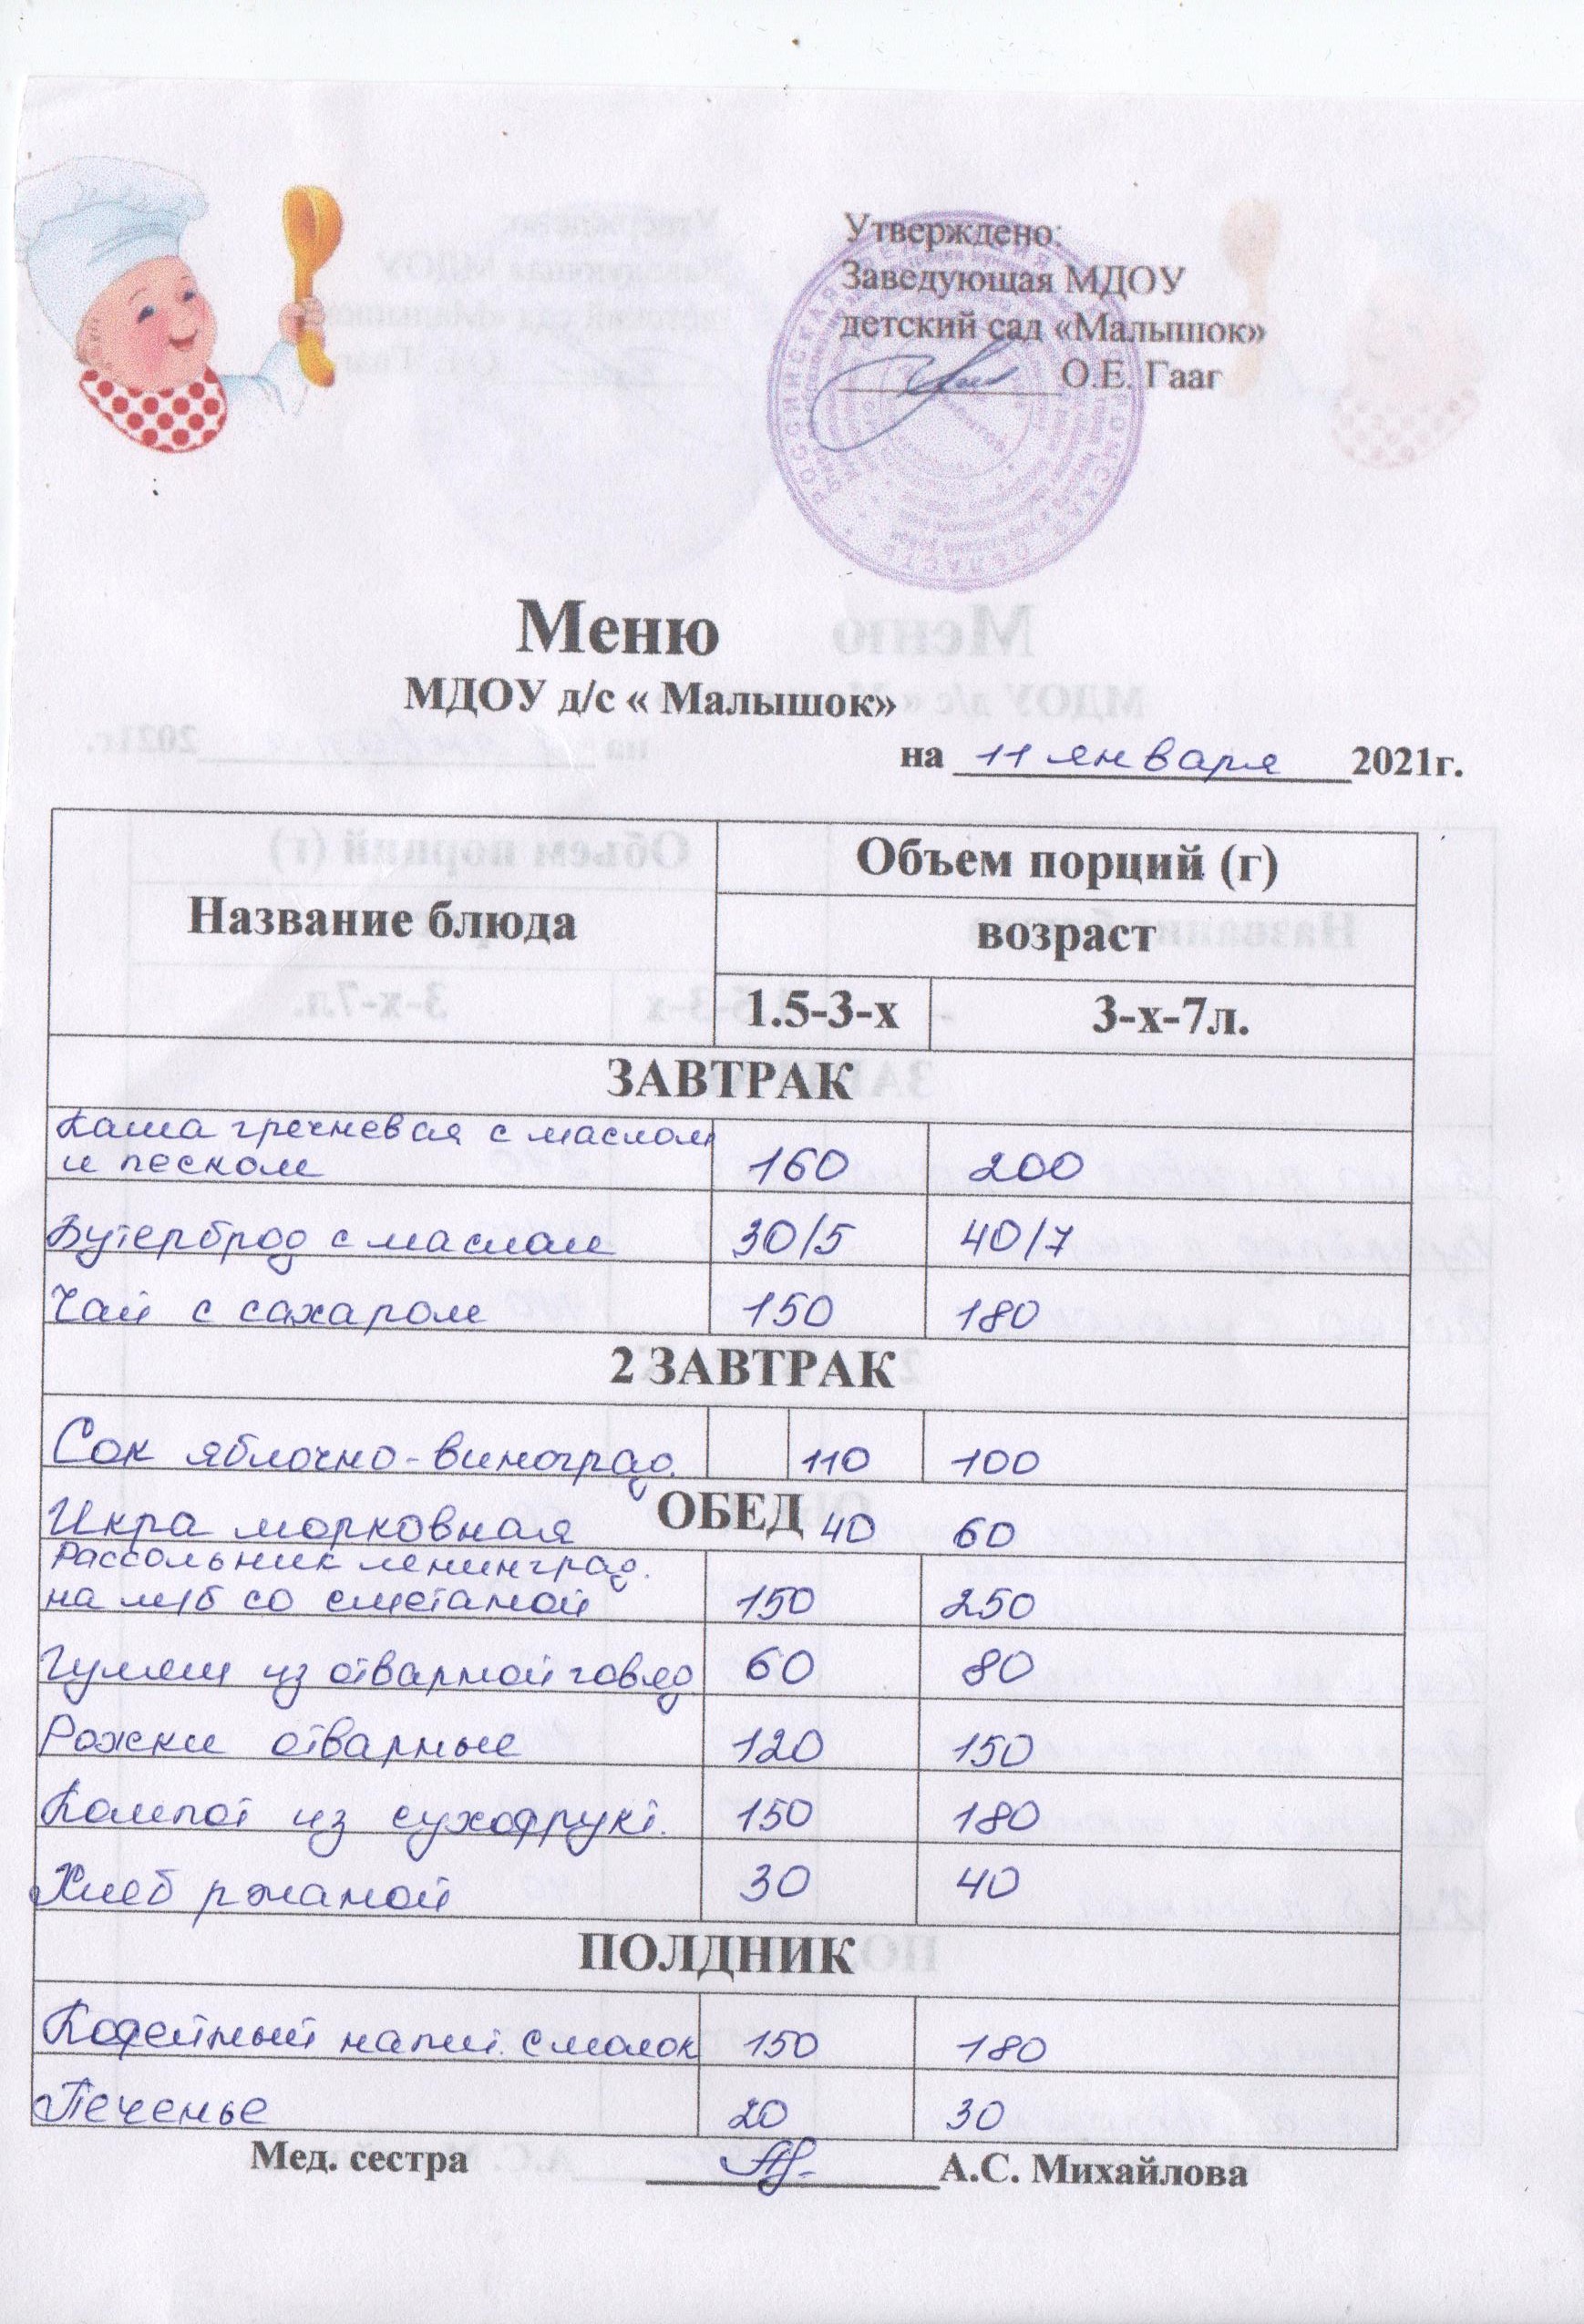 Утверждено:
Заведующая МДОУ
детский сад «Малышок»
О.Е. Гааг
РОССИЙСКАЯ КОСТРОМСКАЯ ОБЛАСТЬ
Меню
МДОУ д/с « Малышок»
на 11 января 2021г.
Название блюда
Объем порций (г)
возраст
1.5-3-х 3-х-7л.
ЗАВТРАК
Каша гречневая с маслом
и песком 160 200
Бутерброд с маслом 30/5 40/7
Чай с сахаром 150 180
2 ЗАВТРАК
Сок яблочно-виноград. 110 100
ОБЕД
Икра морковная 40 60
Рассольник ленинград.
на м/б со сметаной 150 250
Гуляш из отварной говяд 60 80
Рожки отварные 120 150
Компот из сухофрукт. 150 180
Хлеб ржаной 30 40
ПОЛДНИК
Кофейный напит. с молок 150 180
Печенье 20 30
Мед. сестра А.С. Михайлова